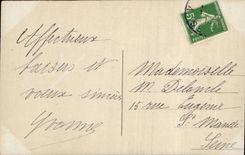 Affectueux
baisers et
voeux sincères
Yvonne
Mademoiselle
M. Delande
15 rue Eugénie
St Mandé
Seine